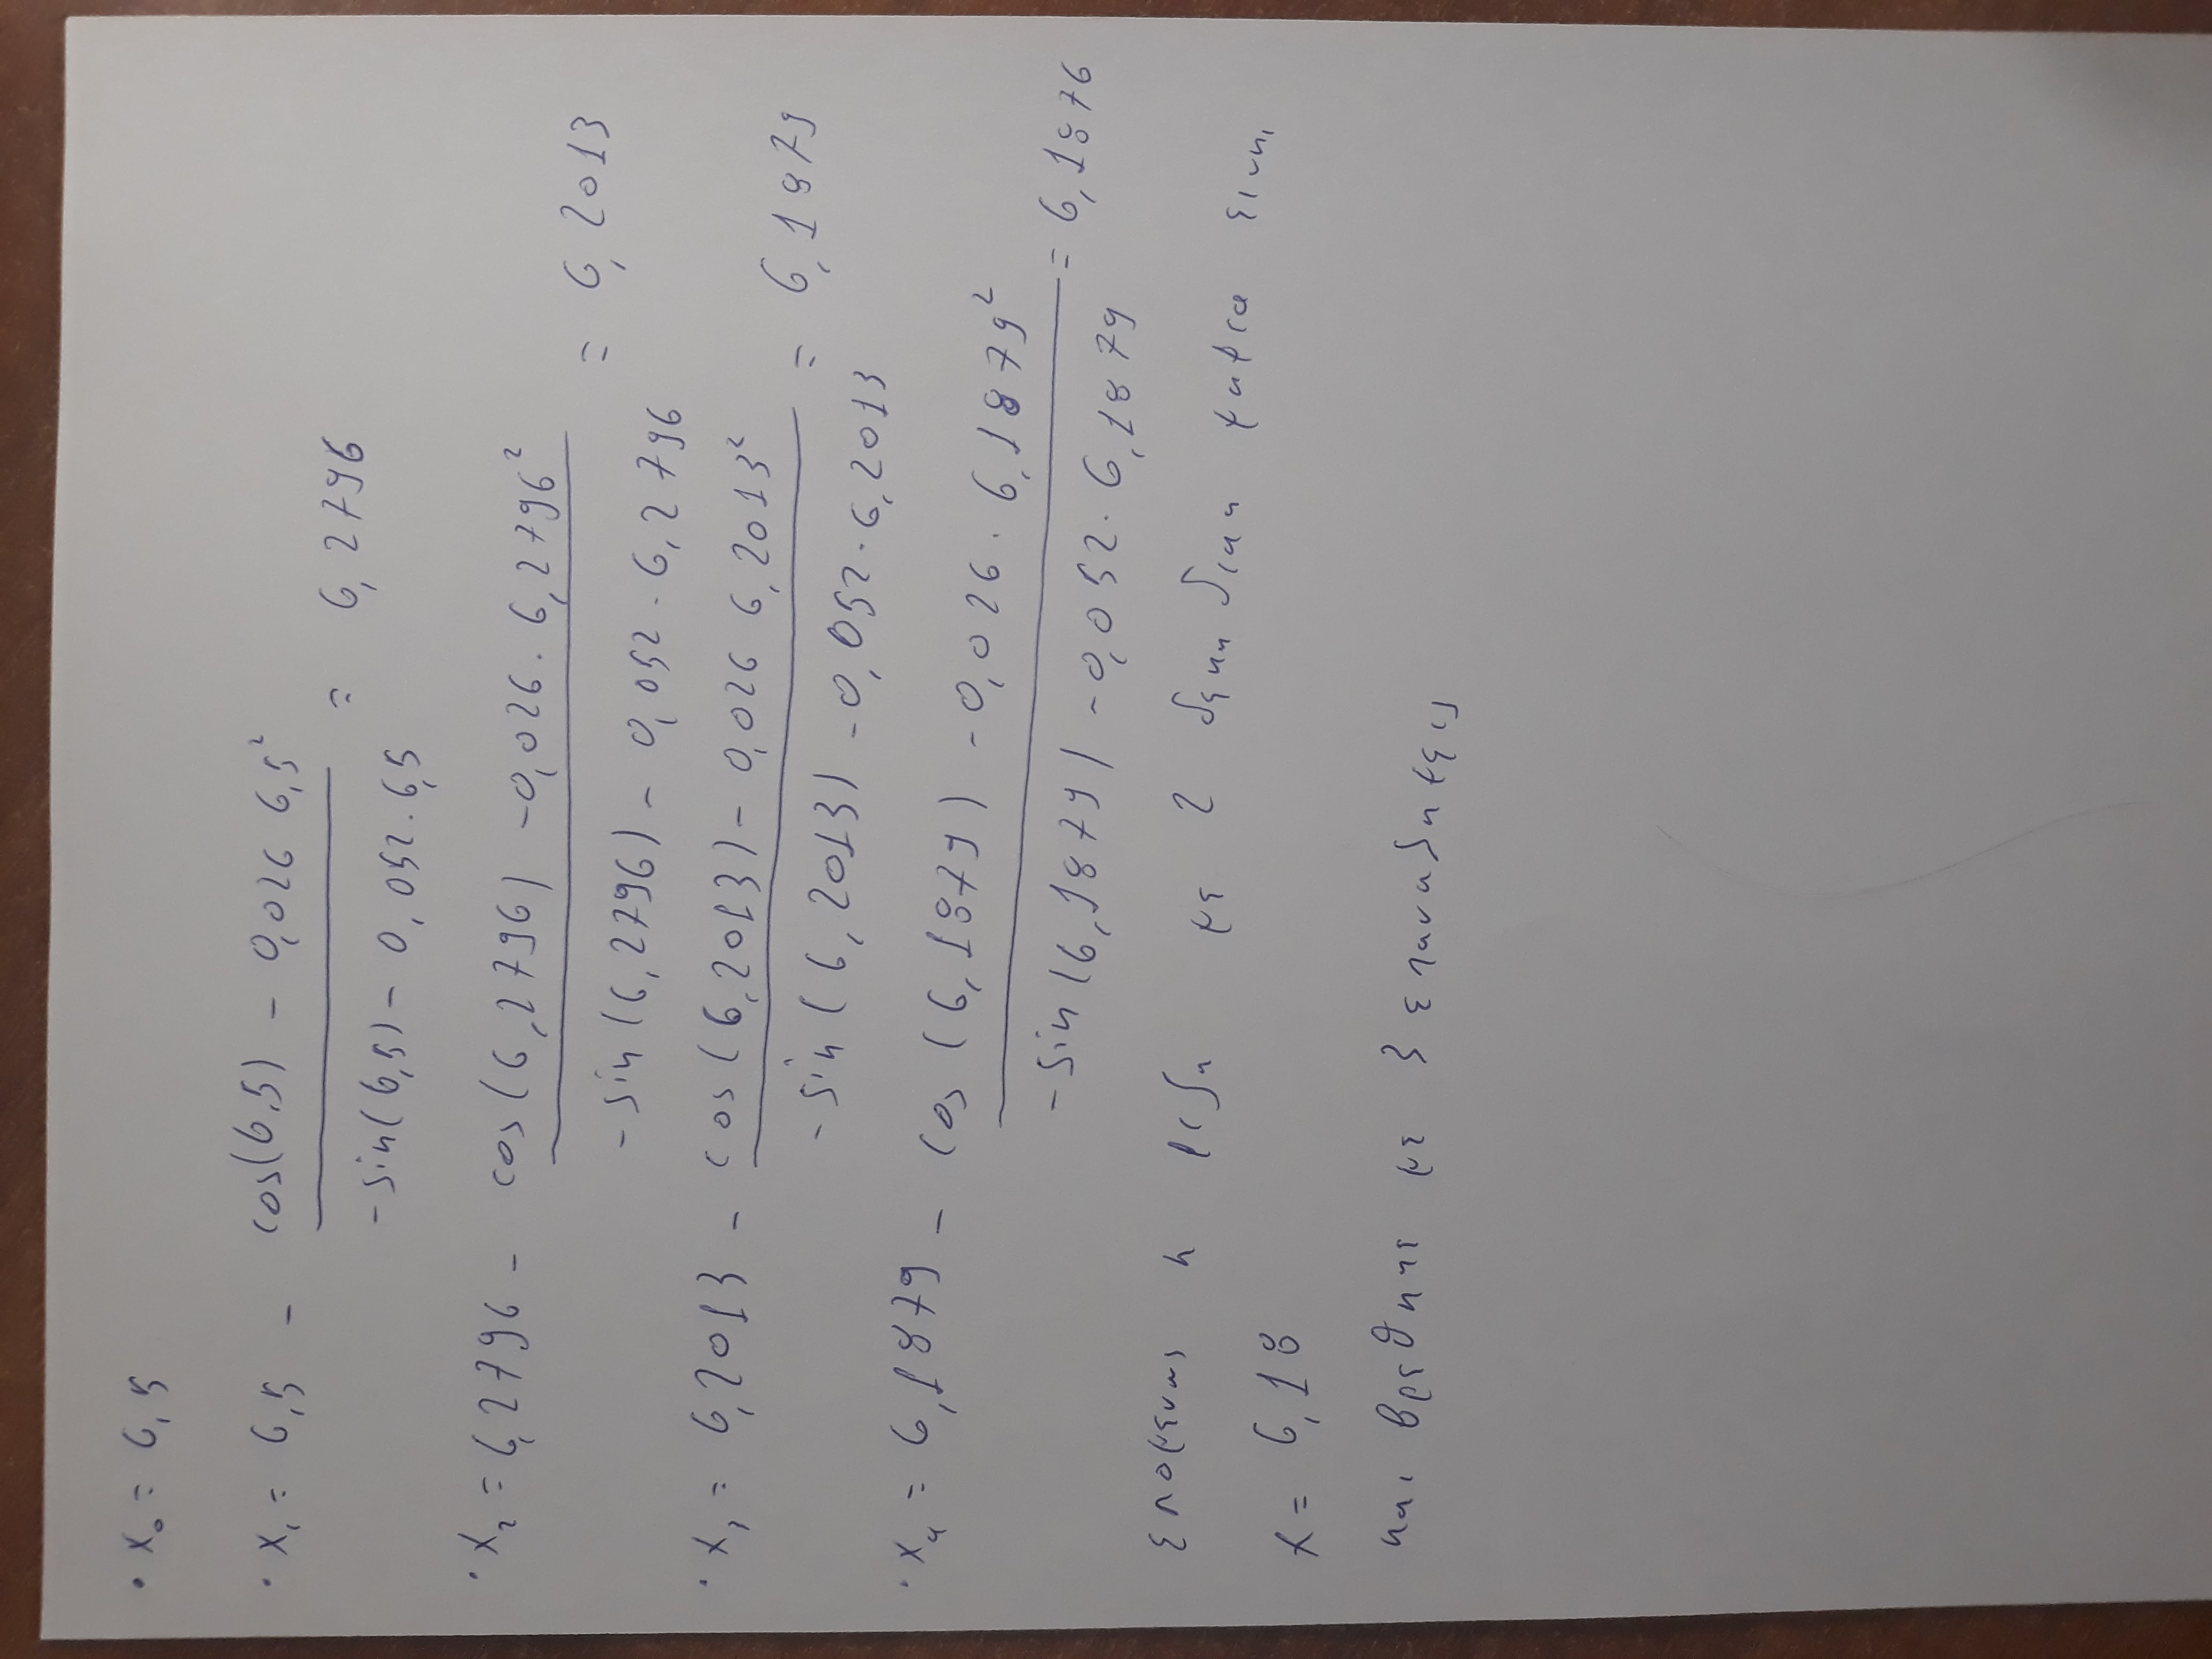 · x₀ = 6,5
· x₁ = 6,5 - (cos(6,5) - 0,026 6,5²) / (-sin(6,5) - 0,052 · 6,5) = 6,2796
· x₂ = 6,2796 - (cos(6,2796) - 0,026 · 6,2796²) / (-sin(6,2796) - 0,052 · 6,2796) = 6,2013
· x₃ = 6,2013 - (cos(6,2013) - 0,026 6,2013²) / (-sin(6,2013) - 0,052 · 6,2013) = 6,1879
· x₄ = 6,1879 - (cos(6,1879) - 0,026 · 6,1879²) / (-sin(6,1879) - 0,052 · 6,1879) = 6,1876
επομενως η ριζα με 2 δεκαδικα ψηφια ειναι
x = 6,18
και βρεθηκε με 3 επαναληψεις